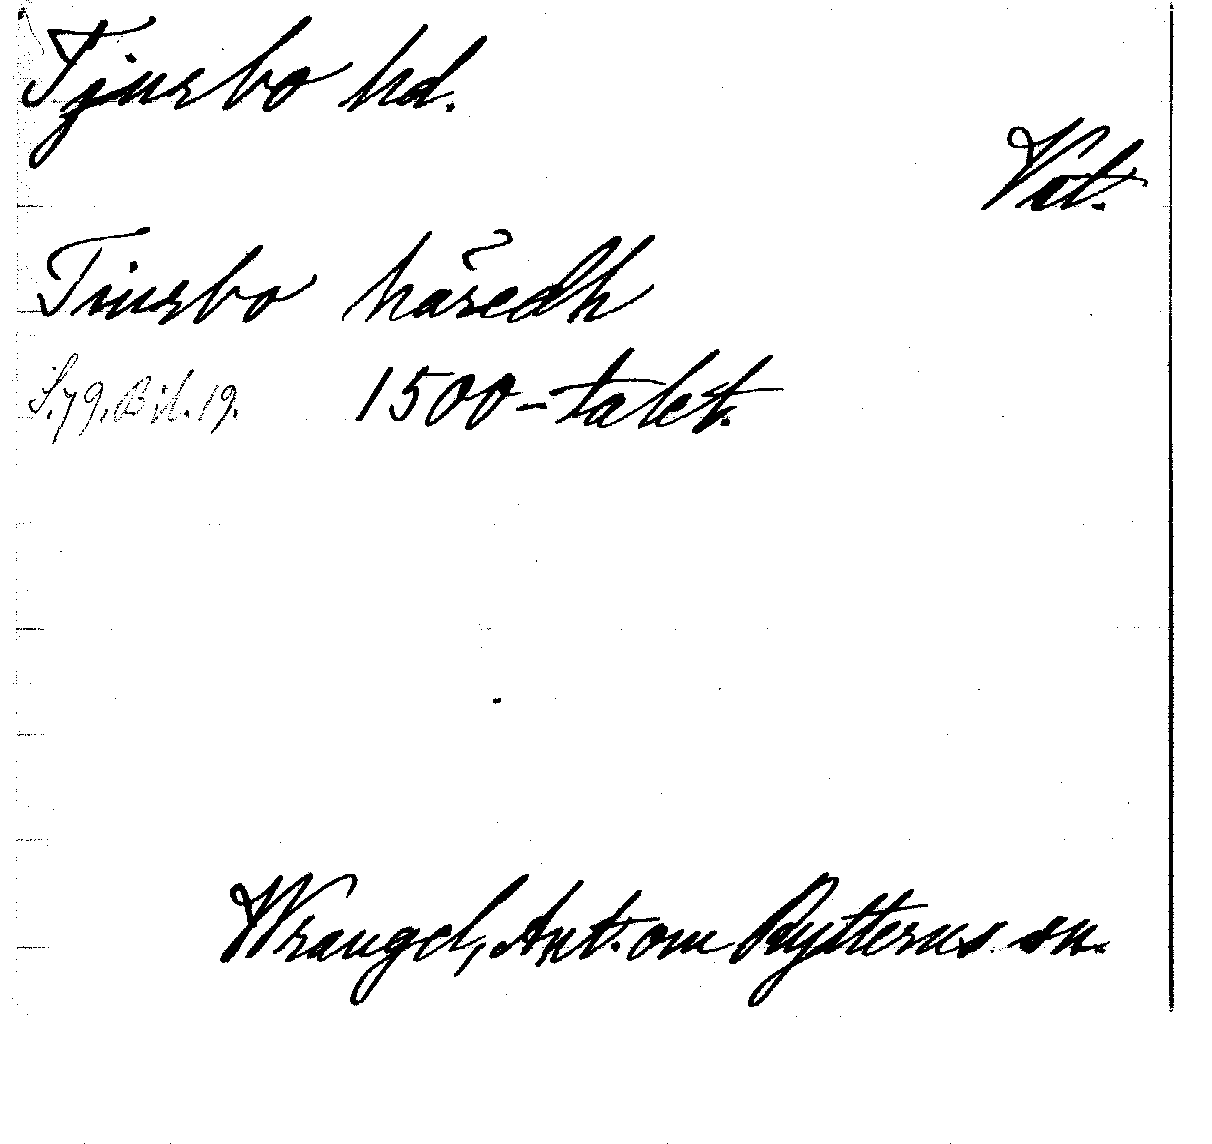 Tjurbo hd.
Vat.
Tiurbo håredh
S. 79. Bil. 19. 1500-talet.
Wrangel, Ant. om Rytterns sn.